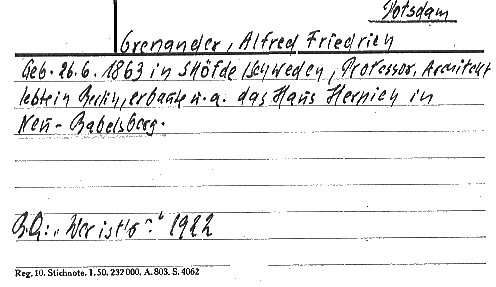 Potsdam
Grenander, Alfred Friedrich
Geb. 26.6. 1863 in Sköfde/Schweden, Professor, Architekt
lebte in Berlin, erbaute u.a. das Haus Herpich in
Neu-Babelsberg.
B.Q.: „Wer ist's?" 1922
Reg. 10. Stichnote. 1. 50. 232 000. A. 803. S. 4062